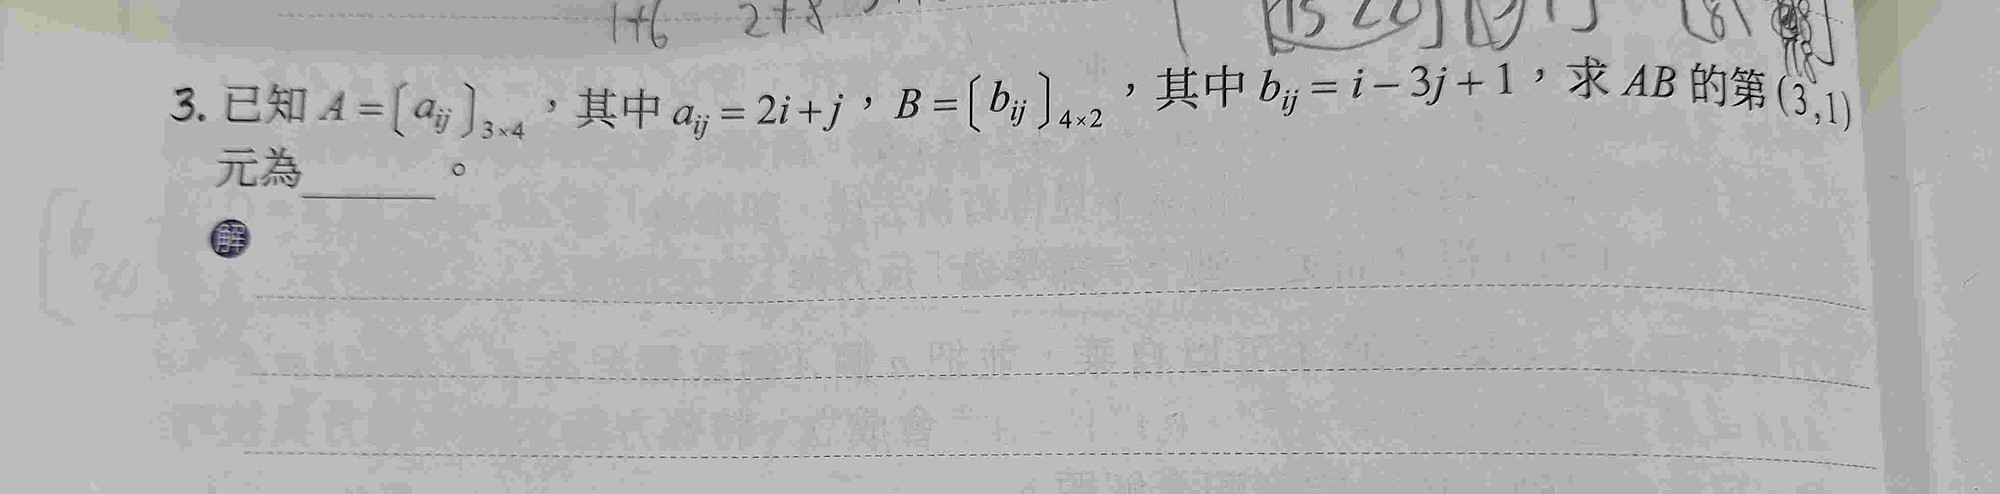 1+6 2+8
3. 已知 A = [a_{ij}]_{3×4}，其中 a_{ij} = 2i + j，B = [b_{ij}]_{4×2}，其中 b_{ij} = i − 3j + 1，求 AB 的第 (3,1)
元為______。
解